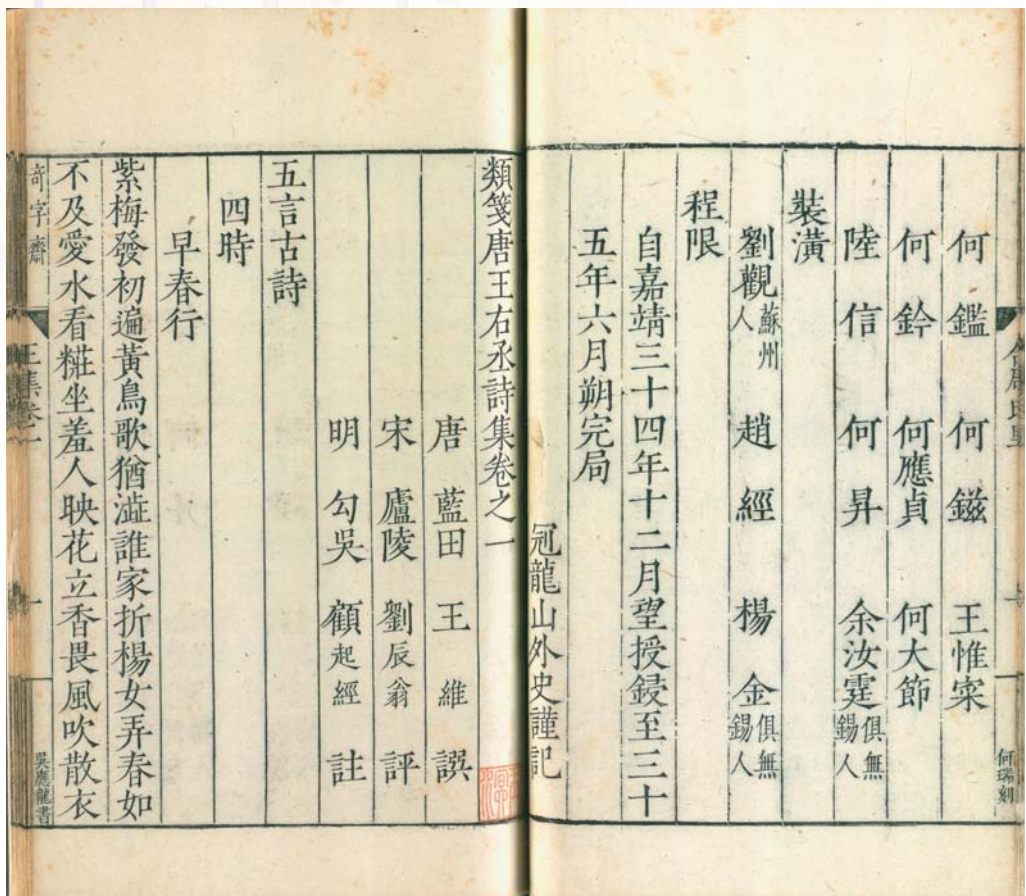 何鑑 何鎡 王惟寀
何鈐 何應貞 何大節
陸信 何昇 余汝霆俱無錫人
裝潢
劉觀蘇州人 趙經 楊金俱無錫人
程限
自嘉靖三十四年十二月望授鋟至三十
五年六月朔完局
冠龍山外史謹記
何瑞刻
類箋唐王右丞詩集卷之一
唐藍田王維譔
宋廬陵劉辰翁評
明勾吳顧起經註
五言古詩
四時
早春行
紫梅發初遍黃鳥歌猶澁誰家折楊女弄春如
不及愛水看糚坐羞人映花立香畏風吹散衣
奇字齋
王集卷一
一
吳應龍書